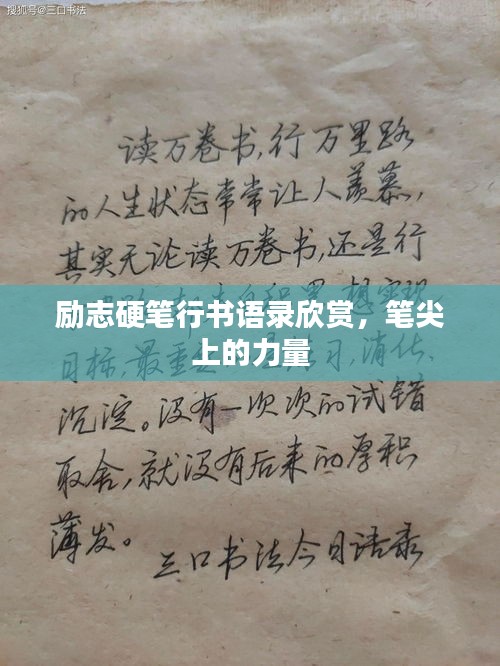 搜狐号@三口书法
读万卷书,行万里路
的人生状态常常让人羡慕,
其实无论读万卷书,还是行
励志硬笔行书语录欣赏，笔尖
上的力量
目标,最重 习,消化、
沉淀。没有一次次的试错
取舍,就没有后来的厚积
薄发。
三口书法今日语录